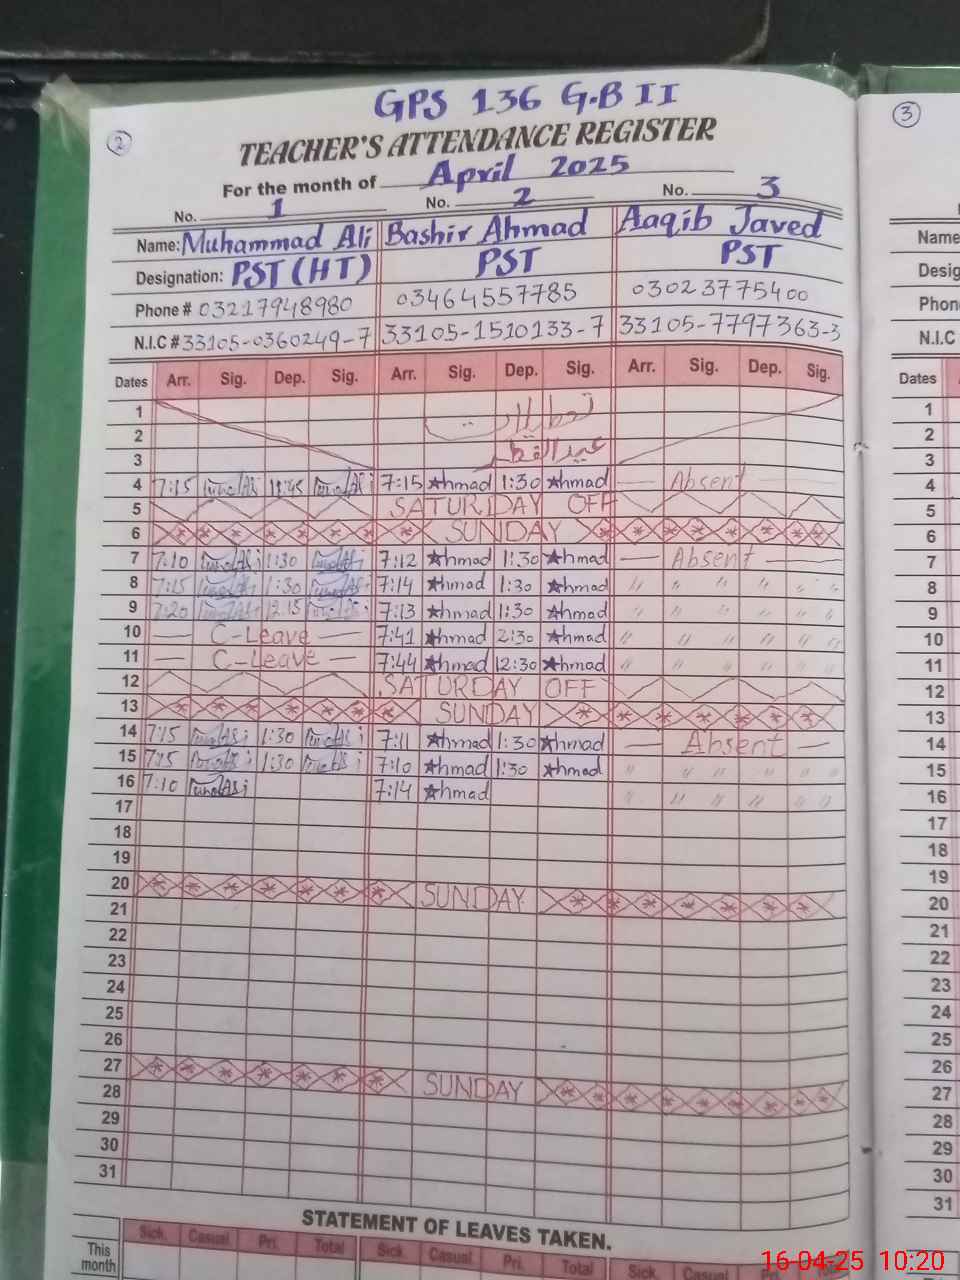 GPS 136 G.B II
2
TEACHER'S ATTENDANCE REGISTER
3
For the month of April 2025
No. 1 No. 2 No. 3
Name: Muhammad Ali Bashir Ahmad Aaqib Javed
Designation: PST (HT) PST PST
Phone # 03217948980 03464557785 03023775400
N.I.C # 33105-0360249-7 33105-1510133-7 33105-7797363-3
Dates Arr. Sig. Dep. Sig. Arr. Sig. Dep. Sig. Arr. Sig. Dep. Sig.
1 تعطیلات
2
3 عید الفطر
4 7:15 11:45 7:15 Ahmad 1:30 Ahmad — Absent —
5 SATURDAY OFF
6 SUNDAY
7 7:10 1:30 7:12 Ahmad 1:30 Ahmad — Absent —
8 7:15 1:30 7:14 Ahmad 1:30 Ahmad " " " " "
9 7:20 12:15 7:13 Ahmad 1:30 Ahmad " " " " "
10 — C-Leave — 7:41 Ahmad 2:30 Ahmad " " " " "
11 — C-Leave — 7:44 Ahmad 12:30 Ahmad " " " " "
12 SATURDAY OFF
13 SUNDAY
14 7:15 1:30 7:11 Ahmad 1:30 Ahmad — Absent —
15 7:15 1:30 7:10 Ahmad 1:30 Ahmad " " " " "
16 7:10 7:14 Ahmad " " " " "
17
18
19
20 SUNDAY
21
22
23
24
25
26
27 SUNDAY
28
29
30
31
STATEMENT OF LEAVES TAKEN.
Sick. Casual Pri. Total Sick. Casual Pri. Total Sick. Casual
This month
Name
Desig
Phon
N.I.C
Dates
1
2
3
4
5
6
7
8
9
10
11
12
13
14
15
16
17
18
19
20
21
22
23
24
25
26
27
28
29
30
31
16-04-25 10:20